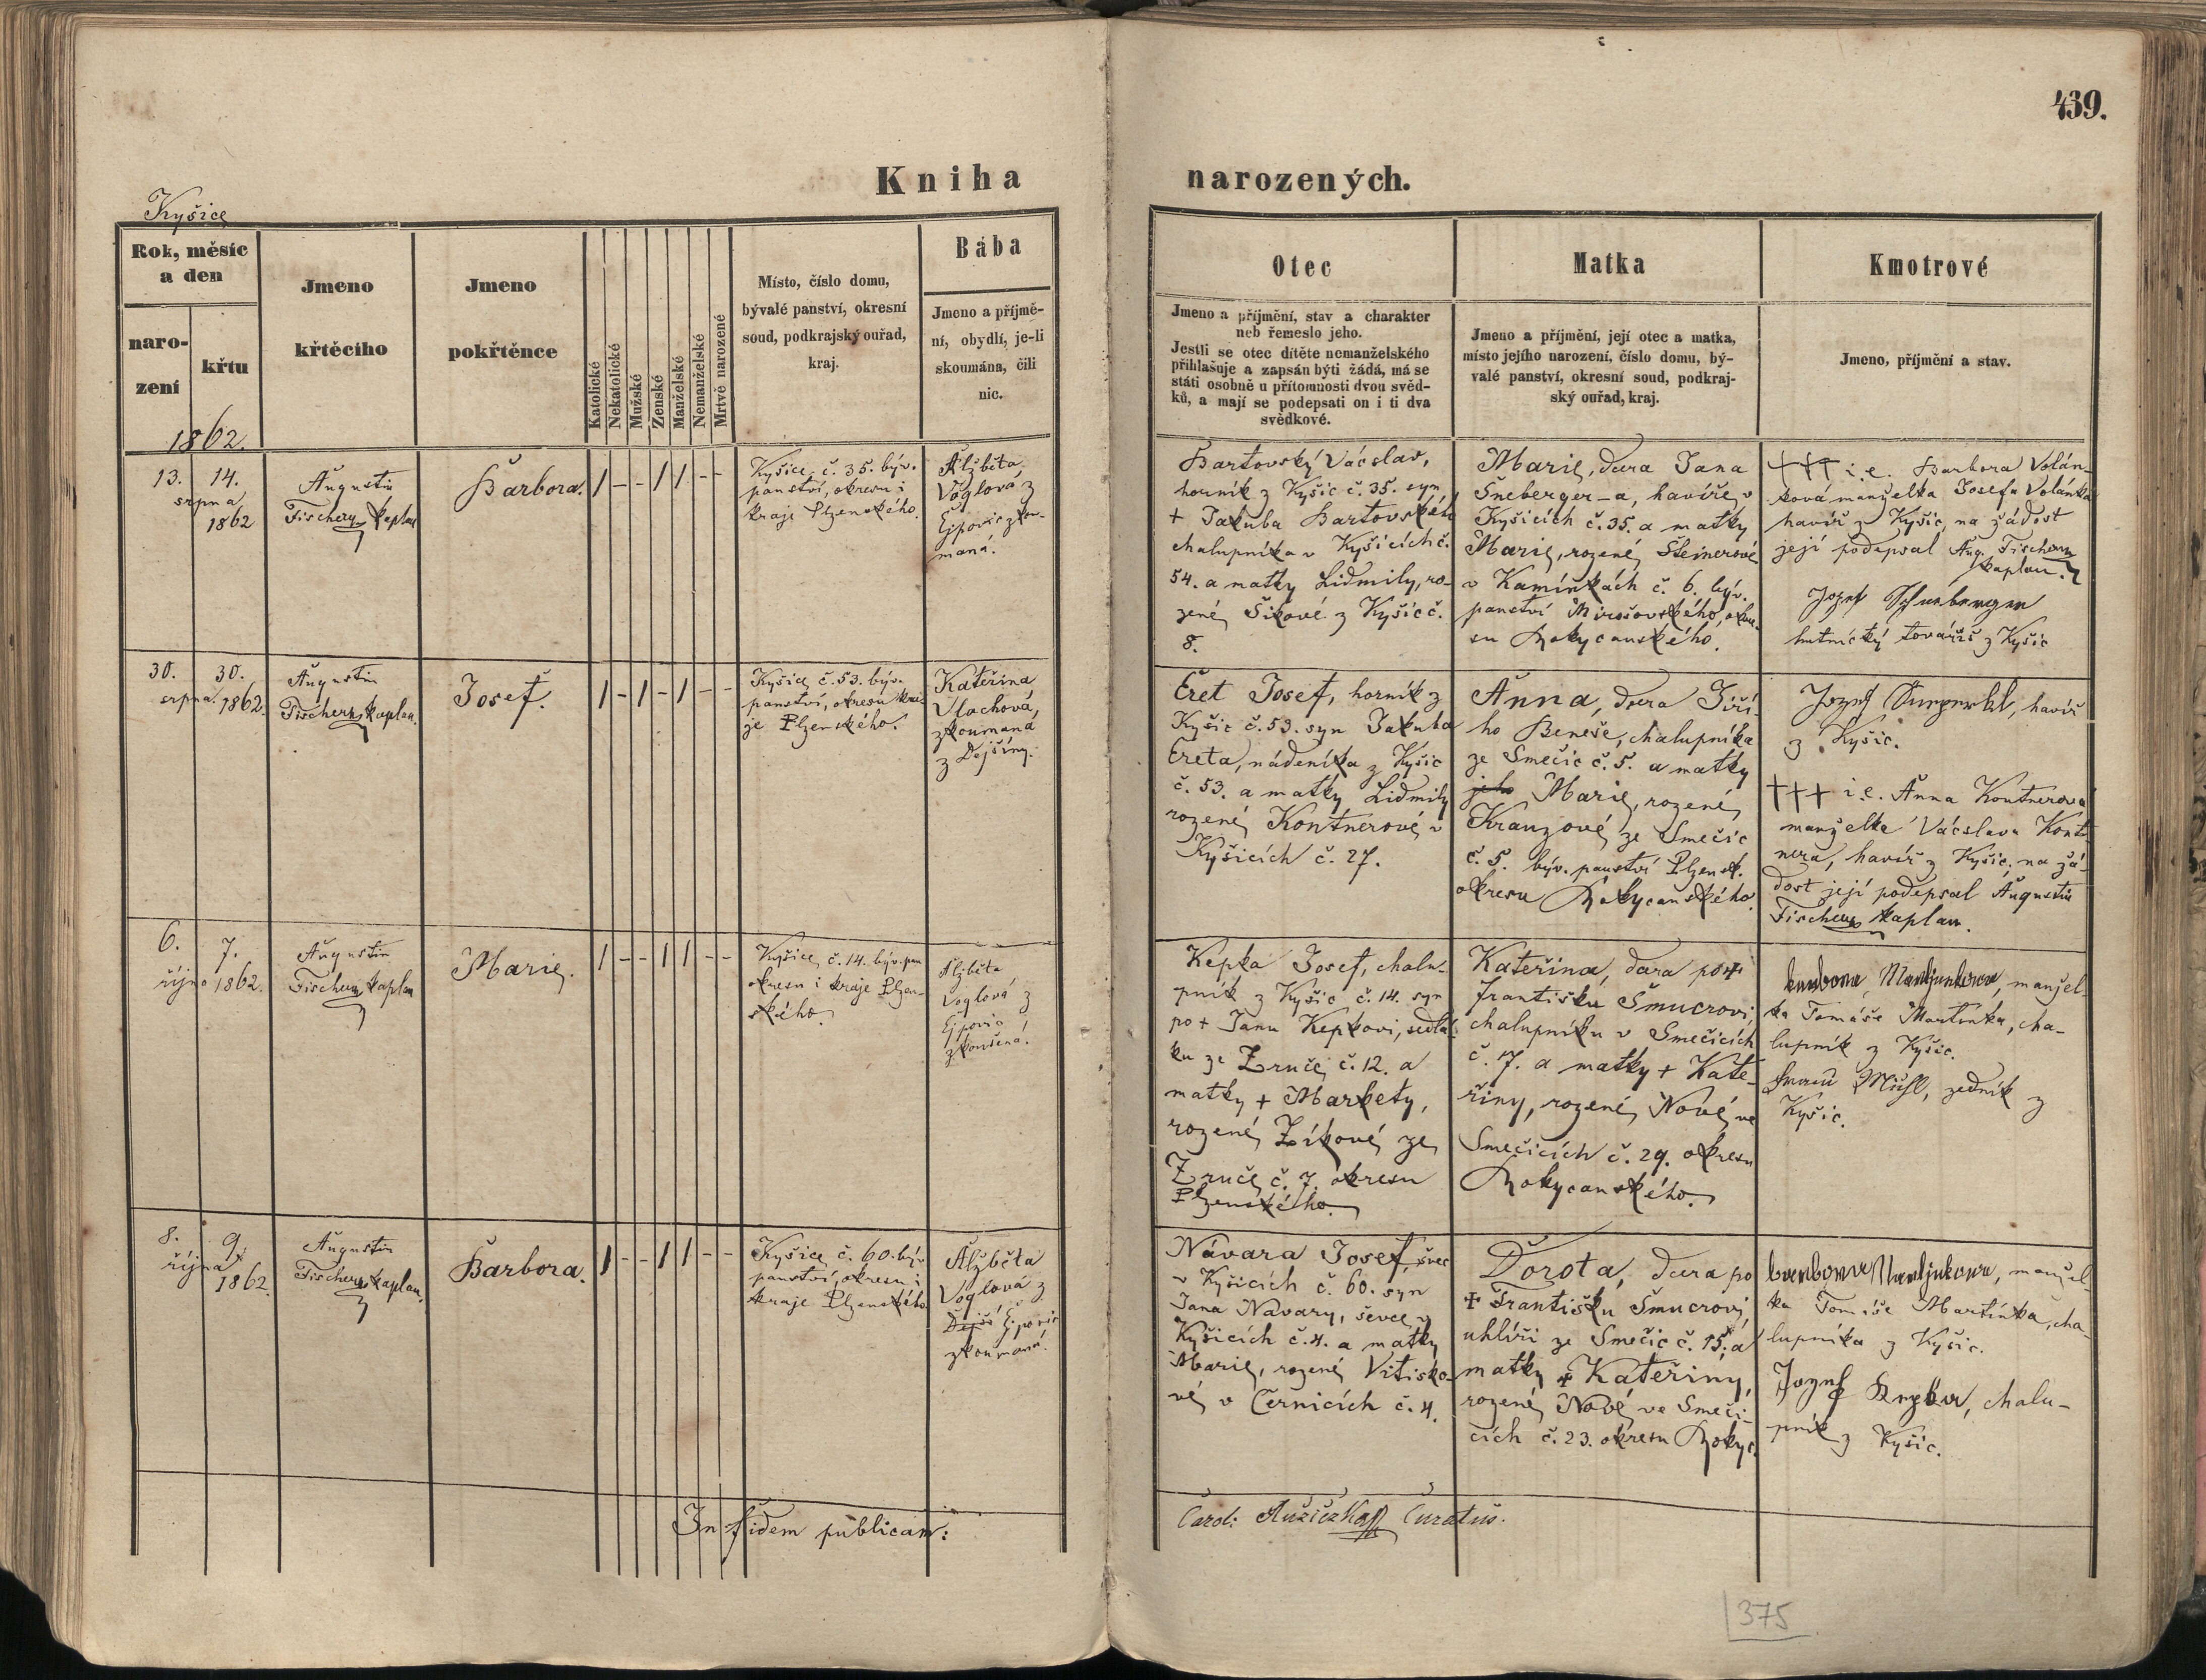 439.
Kniha narozených.
Kyšice
Rok, měsíc
a den
naro-
zení
křtu
1862.
Jmeno
křtěcího
Jmeno
pokřtěnce
Katolické
Nekatolické
Mužské
Ženské
Manželské
Nemanželské
Mrtvě narozené
Místo, číslo domu,
bývalé panství, okresní
soud, podkrajský ouřad,
kraj.
Bába
Jmeno a příjmě-
ní, obydlí, je-li
skoumána, čili
nic.
Otec
Jmeno a příjmění, stav a charakter
neb řemeslo jeho.
Jestli se otec dítěte nemanželského
přihlašuje a zapsán býti žádá, má se
státi osobně u přítomnosti dvou svěd-
ků, a mají se podepsati on i ti dva
svědkové.
Matka
Jmeno a příjmění, její otec a matka,
místo jejího narození, číslo domu, bý-
valé panství, okresní soud, podkraj-
ský ouřad, kraj.
Kmotrové
Jmeno, příjmění a stav.
13. 14.
srpna
1862
Augustin
Fischer kaplan
Barbora.
1 - - 1 1 - -
Kyšice č. 35. býv.
panství, okresu i
kraje Plzenského.
Alžběta
Voglová z
Ejpovic zkou-
maná.
Bartovský Václav,
horník z Kyšic č. 35. syn
+ Jakuba Bartovského
chalupníka v Kyšicích č.
54. a matky Lidmily, ro-
zené Šikové z Kyšic č.
8.
Marie, dcera Jana
Šneberger-a, havíře v
Kyšicích č. 35. a matky
Marie, rozené Steinerové
v Kamínkách č. 6. býv.
panství Mirošovského, okre-
su Rokycanského.
+++ i.e. Barbora Volán-
ková manželka Josefa Volánka
havíř z Kyšic, na žádost
její podepsal Aug. Fischer
kaplan.
Jozef Schneberger
hutnický tovaryš z Kyšic
30. 30.
srpna. 1862.
Augustin
Fischer kaplan.
Josef.
1 - 1 - 1 - -
Kyšice č. 53. býv.
panství, okresu kra-
je Plzenského.
Kateřina
Vlachová,
zkoumaná
z Dejšiny.
Eret Josef, horník z
Kyšic č. 53. syn Jakuba
Ereta, nádeníka z Kyšic
č. 53. a matky Lidmily
rozené Kontnerové v
Kyšicích č. 27.
Anna, dcera Jiří-
ho Beneše, chalupníka
ze Smečic č. 5. a matky
jeho Marie, rozené
Kranzové ze Smečic
č. 5. býv. panství Plzensk.
okresu Rokycanského.
Jozef havíř
z Kyšic.
+++ i.e. Anna Kontnerová
manželka Václava Kont-
nera, havíř z Kyšic, na žá-
dost její podepsal Augustin
Fischer kaplan.
6. 7.
října 1862.
Augustin
Fischer kaplan
Marie.
1 - - 1 1 - -
Kyšice č. 14. býv. pan
okresu i kraje Plzen-
ského.
Alžběta
Voglová z
Ejpovic
zkoušená.
Kepka Josef, chalu-
pník z Kyšic č. 14. syn
po + Janu Kepkovi, sedlá-
ku ze Zruče č. 12. a
matky + Markety,
rozené Zíkové ze
Zruče č. 7. okresu
Plzenského.
Kateřina, dcera po +
Františku Šmucrovi,
chalupníku v Smečicích
č. 17. a matky + Kate-
řiny, rozené Nové ve
Smečicích č. 29. okresu
Rokycanského.
manžel-
ka Tomáše Martínka, cha-
lupník z Kyšic.
zedník z
Kyšic.
8. 9.
října
1862.
Augustin
Fischer kaplan.
Barbora.
1 - - 1 1 - -
Kyšice č. 60. býv.
panství, okresu i
kraje Plzenského
Alžběta
Voglová z
Dejší Ejpovic
zkoumaná.
Návara Josef, švec
v Kyšicích č. 60. syn
Jana Návary, ševce v
Kyšicích č. 4. a matky
Marie, rozené Vitisko-
vé v Černicích č. 4.
Dorota, dcera po
+ Františku Šmucrovi,
uhlíři ze Smečic č. 15, a
matky + Kateřiny,
rozené Nové ve Smeči-
cích č. 23. okresu Rokyc.
manžel-
ka Tomáše Martínka, cha-
lupníka z Kyšic.
Jozef chalu-
pník z Kyšic.
In fidem publicam: Carol: Růžiczka Curatus.
375